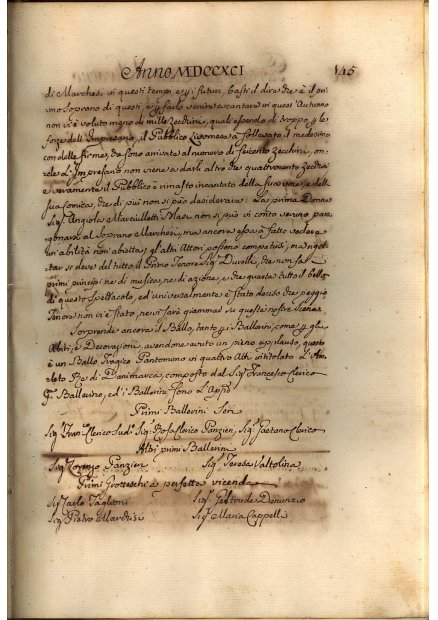 Anno MDCCXCI 145
di Marchesi in questi tempi, e p. i futuri, basti il dire che è il
mo soprano di questi, e p. farlo venire a cantare in quest'Autunno
non vi è voluto meno di mille zecchini, quali essendo di troppo p. le
forze dell'Impresario, il Pubblico Livornese à sollevato il medesimo
con delle firme, che sono arrivate al numero di seicento zecchini, on-
de l'Impresario non viene a darli altro che quattrocento zecchini
e veramente il Pubblico è rimasto incantato della sua voce, e della
sua comica, che di più non si può desiderare: La prima Donna
Sig.ra Angiola Marciulletti Masi non si può in conto veruno pa-
ragonare al soprano Marchesi, ma ancora essa à fatto vedere
un'abilità non abietta; gl'altri Attori possono compatirsi, ma
si deve del tutto il Primo Tenore Sig.r Durelli, che non sa i
primi principi ne di musica, ne di azione, e che guasta tutto il bello
di questo spettacolo, ed universalmente è stato deciso che peggio
Tenore non vi è stato, ne vi sarà giammai su queste nostre scene
Sorprende ancora il Ballo, tanto p. i Ballerini, come p. gli
Abiti, e Decorazioni, avendone avuto un pieno applauso, questo
è un Ballo Tragico Pantomimo in quattro Atti intitolato L'Am-
leto Re di Danimarca, composto dal Sig.r Francesco Clerico
Ballerine, ed i Ballerini sono l'app.
Primi Ballerini Seri
Sig.r Fran. Clerico sud. Sig.ra Rosa Clerico Panzieri, Sig.r Gaetano Clerico
Altri primi Ballerini
Sig.r Lorenzo Panzieri Sig.ra Teresa Valtolina
Primi Grotteschi a perfetta vicenda
Sig.r Carlo Taglioni Sig.ra Geltrude Denunzio
Sig.r Pietro Marchisi Sig.ra Maria Cappelli